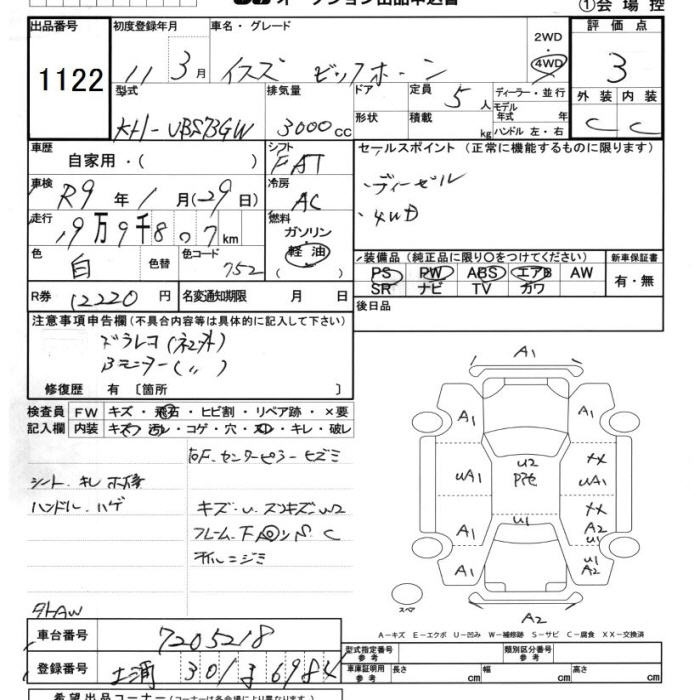 オークション出品申込書
①会場控
出品番号 初度登録年月 車名・グレード 2WD 評価点
1122 11 3月 イスズ ビッグホーン 4WD 3
型式 排気量 ドア 定員 5人 ディーラー・並行 外装 内装
KH-UBS73GW 3000cc 形状 積載 kg モデル年式 年 C C
ハンドル 左・右
車歴 シフト セールスポイント (正常に機能するものに限ります)
自家用・( ) FAT
・ディーゼル
車検 R9年1月(29日) 冷房 AC
・4WD
走行 19万9千807km 燃料 ガソリン
軽油
( )
色 白 色替 色コード 752
装備品(純正品に限り〇をつけてください) 新車保証書
PS PW ABS エアB AW 有・無
SR ナビ TV カワ
R券 12220円 名変通知期限 月 日 後日品
注意事項申告欄(不具合内容等は具体的に記入して下さい)
ドラレコ(社外)
Bモニター(〃)
修復歴 有 〔箇所 〕
検査員 FW キズ・飛石・ヒビ割・リペア跡・×要
記入欄 内装 キズ・汚レ・コゲ・穴・スレ・キレ・破レ
センターピラー ヒズミ
シート キレ
ハンドル・ハゲ
キズ・U・スリキズ・W2
フレーム・下 C
オイルニジミ
A1
A1 A1
UA1 U2 XX
UA1
XX
U1 A2
A1 U1
A1 A2
スペア
A2
A-キズ E-エクボ U-凹み W-補修跡 S-サビ C-腐食 XX-交換済
社外AW
車台番号 7205218
登録番号 土浦 301 ま 6984
型式指定番号 参考 類別区分番号 参考
車庫証明用 参考 長さ cm 幅 cm 高さ cm
希望出品コーナー(コーナーは各会場により異なります)